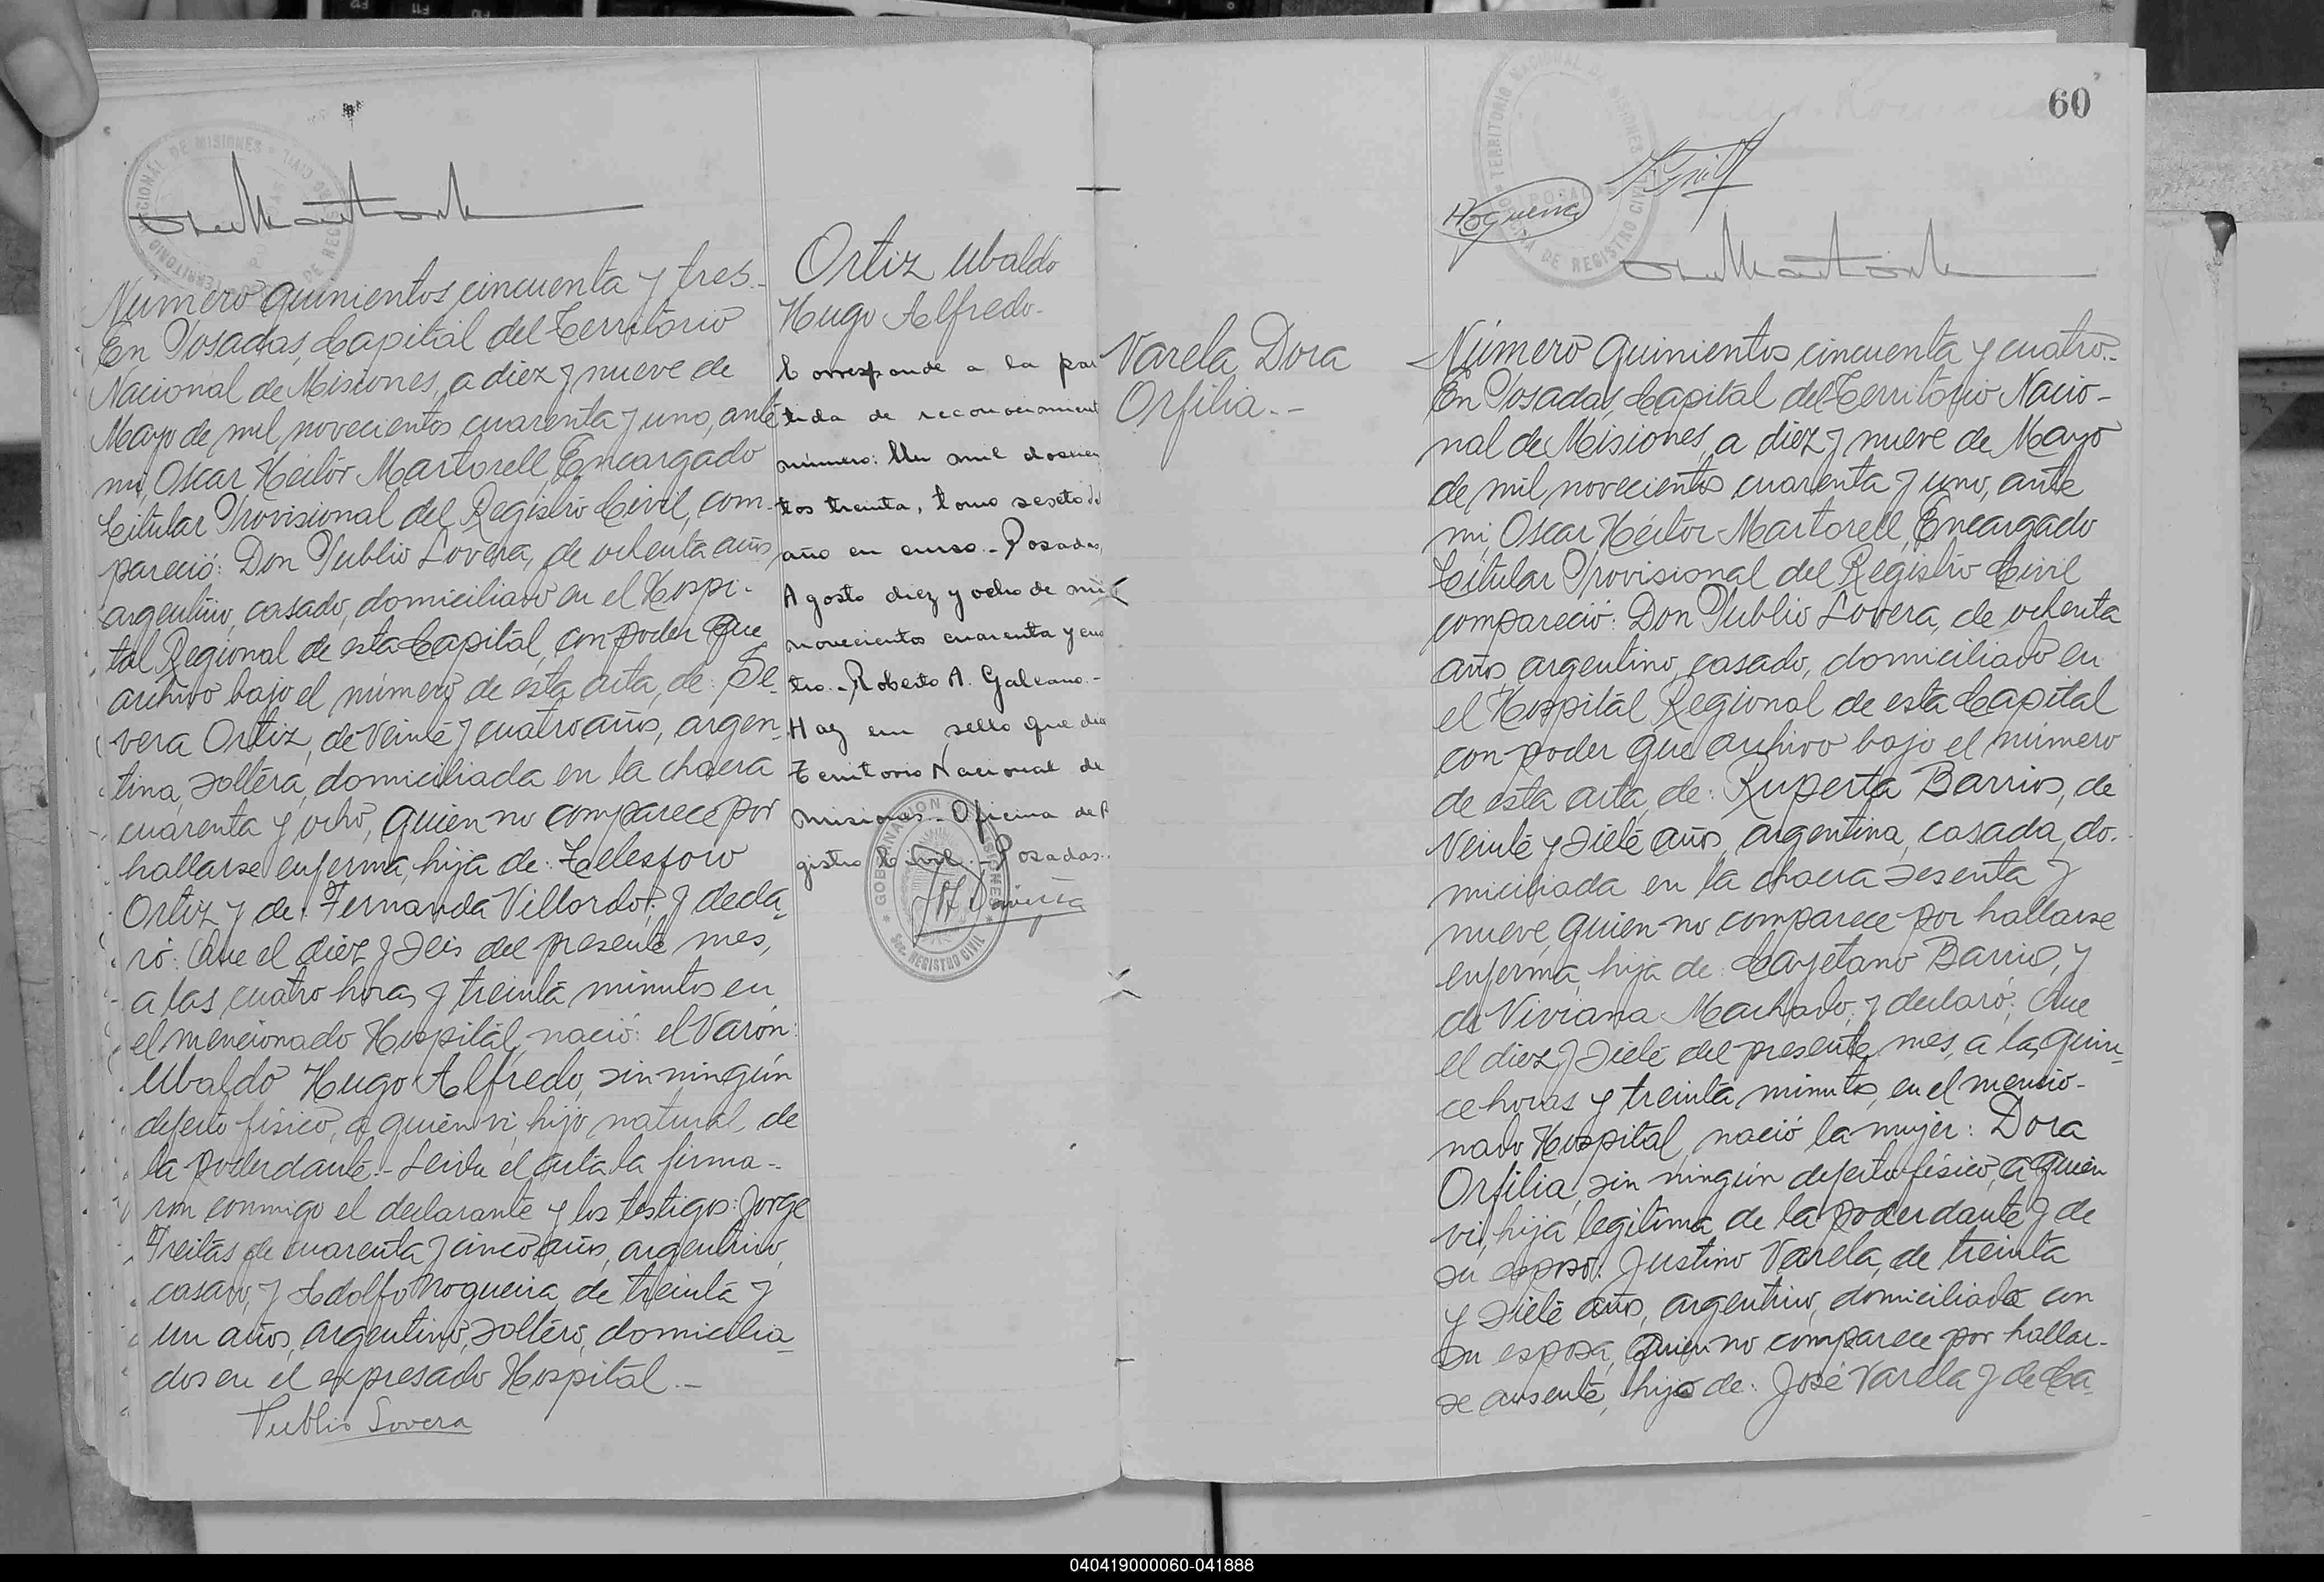 Numero quinientos cincuenta y tres.-
En Posadas, Capital del Territorio
Nacional de Misiones, a diez y nueve de
Mayo de mil novecientos cuarenta y uno, ante
mi, Oscar Héctor Martorell, Encargado
Titular Provisional del Registro Civil, com-
pareció: Don Publio Lovera, de ochenta años,
argentino, casado, domiciliado en el Hospi-
tal Regional de esta Capital, con poder que
archivo bajo el número de esta acta, de: Se-
vera Ortiz, de veinte y cuatro años, argen-
tina, soltera, domiciliada en la chacra
cuarenta y ocho, quien no comparece por
hallarse enferma, hija de: Telesforo
Ortiz y de: Fernanda Villordo; y decla-
ró: Que el diez y seis del presente mes,
a las cuatro horas y treinta minutos en
el mencionado Hospital, nació: el Varón:
Ubaldo Hugo Alfredo, sin ningún
defecto físico, a quien vi, hijo natural de
la poderdante.- Leida el acta la firma-
ron conmigo el declarante y los testigos: Jorge
Freitas de cuarenta y cinco años, argentino,
casado, y Adolfo Nogueira de treinta y
un años, argentino, soltero, domicilia-
dos en el expresado Hospital.-
Publio Lovera
Ortiz Ubaldo
Hugo Alfredo.-
Corresponde a la par
tida de reconocimient
número: Un mil doscien
tos treinta, tomo sexto de
año en curso.- Posadas,
Agosto diez y ocho de mil
novecientos cuarenta y cua
tro.- Roberto A. Galeano.-
Hay un sello que dice
Territorio Nacional de
Misiones.- Oficina de R
gistro Civil.- Posadas.
GOBERNACION MISIONES
Sec. REGISTRO CIVIL
60
TERRITORIO NACIONAL DE MISIONES
POSADAS
DE REGISTRO CIVIL
Nogueira
Varela Dora
Orfilia.-
Número quinientos cincuenta y cuatro.-
En Posadas, Capital del Territorio Nacio-
nal de Misiones, a diez y nueve de Mayo
de mil novecientos cuarenta y uno, ante
mi, Oscar Héctor Martorell, Encargado
Titular Provisional del Registro Civil
compareció: Don Publio Lovera, de ochenta
años, argentino, casado, domiciliado en
el Hospital Regional de esta Capital
con poder que archivo bajo el número
de esta acta, de: Ruperta Barrios, de
veinte y siete años, argentina, casada, do-
miciliada en la chacra sesenta y
nueve, quien no comparece por hallarse
enferma, hija de: Cayetano Barrio, y
de Viviana Machado; y declaró: Que
el diez y siete del presente mes, a las quin-
ce horas y treinta minutos, en el mencio-
nado Hospital, nació la mujer: Dora
Orfilia, sin ningún defecto físico, a quien
vi, hija legitima de la poderdante y de
su esposo: Justino Varela, de treinta
y siete años, argentino, domiciliado con
su esposa, quien no comparece por hallar-
se ausente, hijo de: José Varela y de Ca-
040419000060-041888